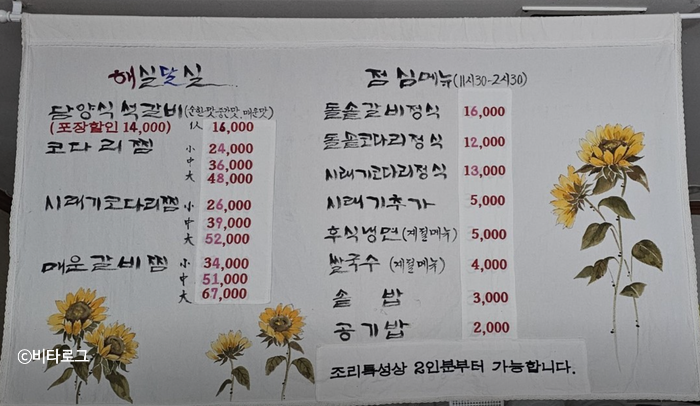 해실달실
담양식 석갈비 (순한맛, 중간맛, 매운맛)
(포장할인 14,000) 1人 16,000
코다리찜 小 24,000
中 36,000
大 48,000
시래기코다리찜 小 26,000
中 39,000
大 52,000
매운갈비찜 小 34,000
中 51,000
大 67,000
점심메뉴 (11시30-2시30)
돌솥갈비정식 16,000
돌솥코다리정식 12,000
시래기코다리정식 13,000
시래기추가 5,000
후식냉면 (계절메뉴) 5,000
쌀국수 (계절메뉴) 4,000
솥밥 3,000
공기밥 2,000
조리특성상 2인분부터 가능합니다.
©비타로그